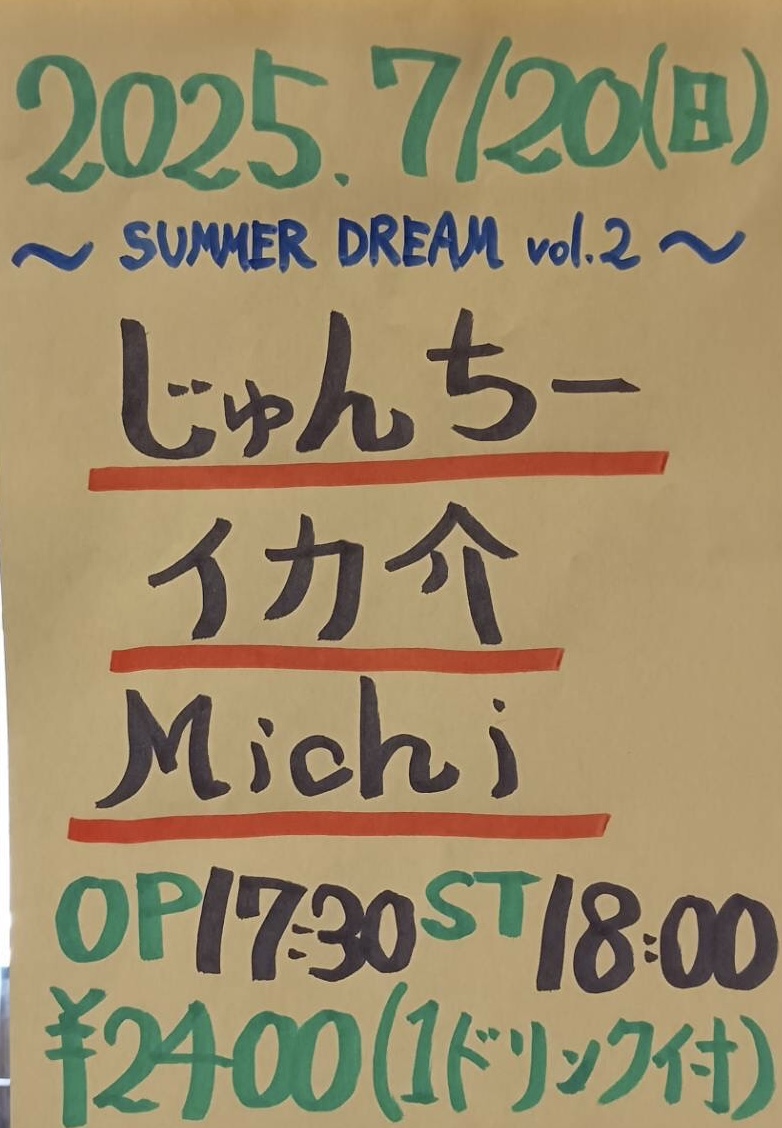 2025.7/20(日)
～ SUMMER DREAM vol.2 ～
じゅんちー
イカ介
Michi
OP17:30 ST18:00
¥2400(1ドリンク付)